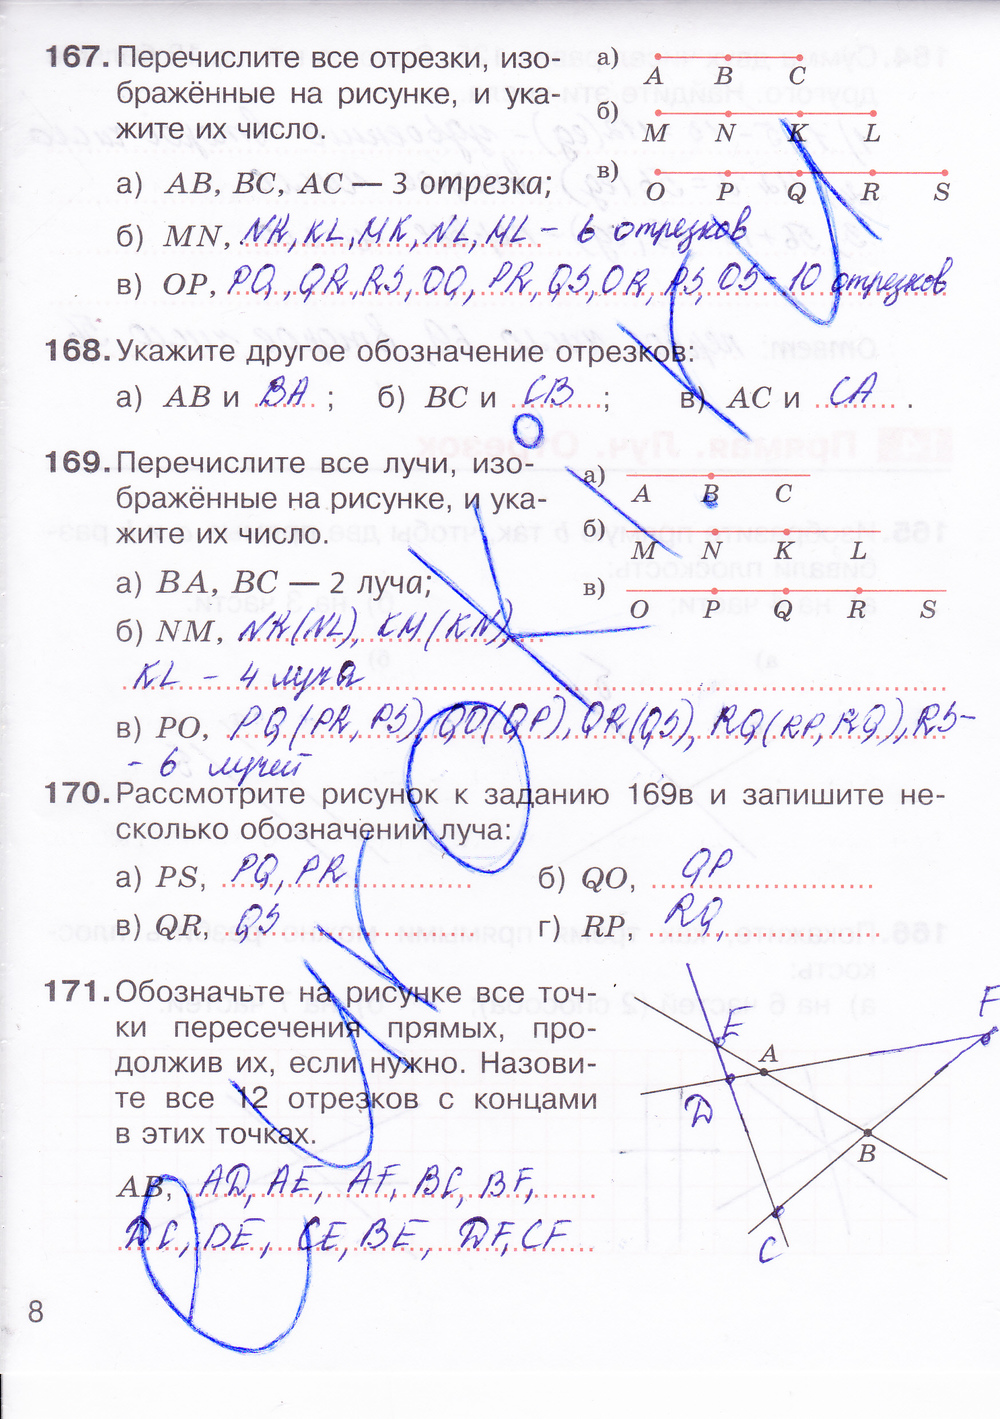 167. Перечислите все отрезки, изо-
бражённые на рисунке, и ука-
жите их число.
а) A B C
б) M N K L
в) O P Q R S
а) AB, BC, AC — 3 отрезка;
б) MN, NK, KL, MK, NL, ML - 6 отрезков
в) OP, PQ, QR, RS, OQ, PR, QS, OR, PS, OS - 10 отрезков
168. Укажите другое обозначение отрезков:
а) AB и BA ; б) BC и CB ; в) AC и CA .
169. Перечислите все лучи, изо-
бражённые на рисунке, и ука-
жите их число.
а) A B C
б) M N K L
в) O P Q R S
а) BA, BC — 2 луча;
б) NM, NK(NL), KM(KN),
KL - 4 луча
в) PO, PQ(PR, PS), QO(QP), QR(QS), RQ(RP, RQ), RS-
- 6 лучей
170. Рассмотрите рисунок к заданию 169в и запишите не-
сколько обозначений луча:
а) PS, PQ, PR б) QO, QP
в) QR, QS г) RP, RQ,
171. Обозначьте на рисунке все точ-
ки пересечения прямых, про-
должив их, если нужно. Назови-
те все 12 отрезков с концами
в этих точках.
E
A
F
D
B
C
AB, AD, AE, AF, BC, BF,
DC, DE, CE, BE, DF, CF
8